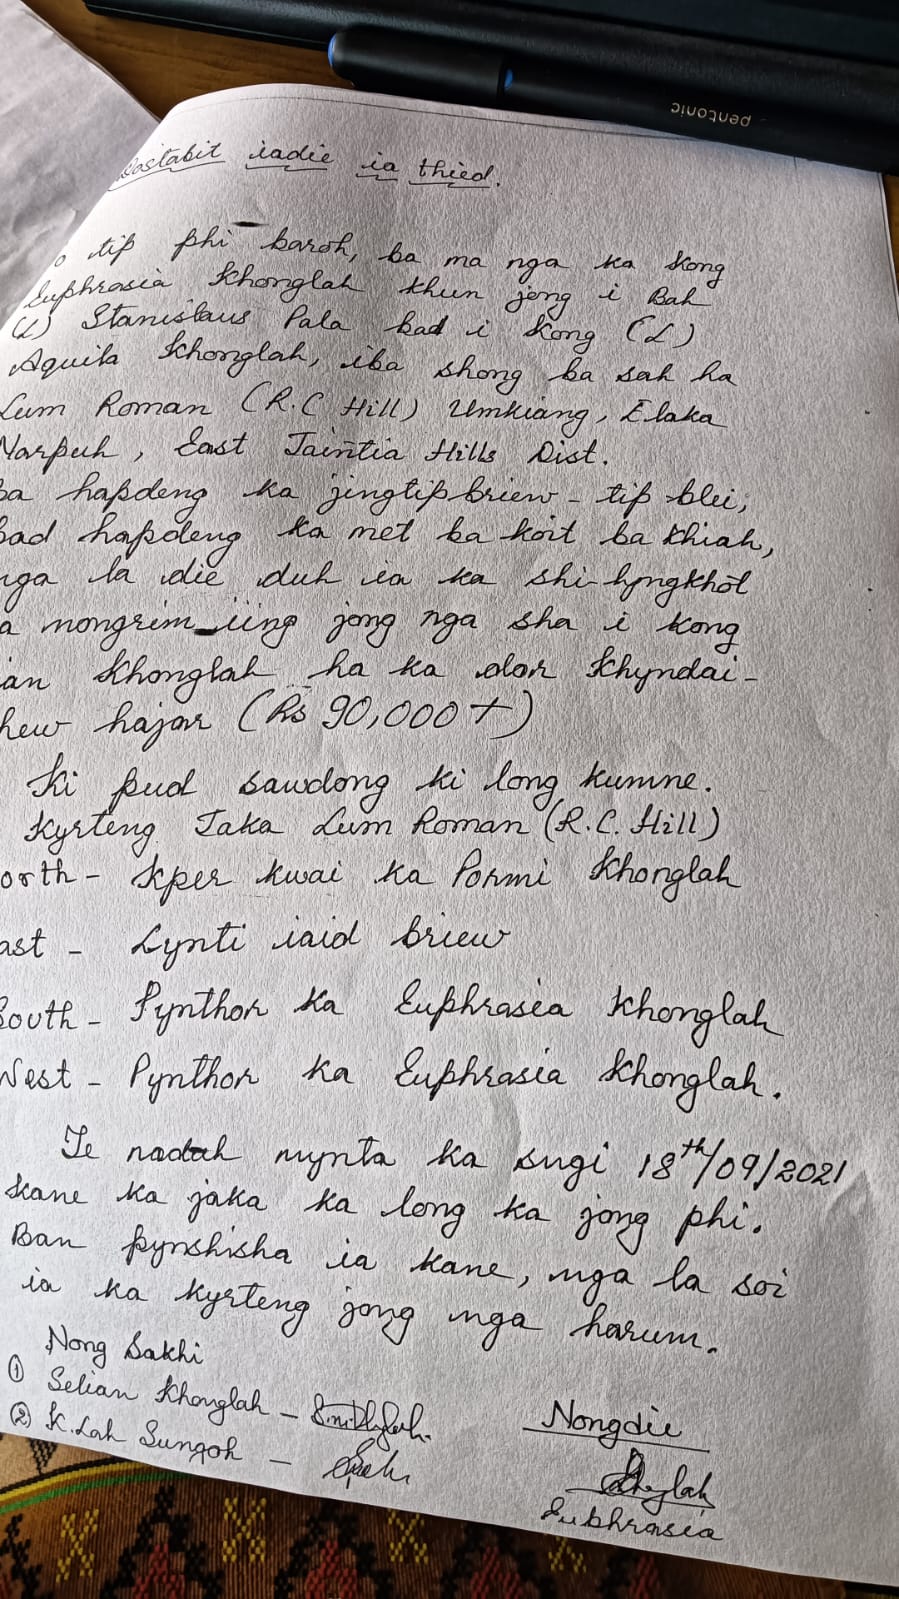 pentonic
Dastabit iadie ia thied.
tip phi baroh, ba ma nga ka Kong
Euphrasia Khonglah khun jong i Bah
(L) Stanislaus Pala bad i Kong (L)
Aquila Khonglah, iba shong ba sah ha
Lum Roman (R.C Hill) Umkiang, Elaka
Narpuh, East Jaintia Hills Dist.
ba hapdeng ka jingtip briew - tip blei,
bad hapdeng ka met ba koit ba khiah,
nga la die duh ia ka shi-lyngkhot
mongrim iing jong nga sha i Kong
Khonglah ha ka dor Khyndai-
hew hajar (Rs 90,000+)
Ki pud sawdong ki long kumne.
Kyrteng Jaka Lum Roman (R.C. Hill)
orth - Kper kwai ka Pormi Khonglah
ast - Lynti iaid briew
South - Pynthor ka Euphrasia Khonglah
West - Pynthor ka Euphrasia Khonglah.
Te naduh mynta ka sngi 18th/09/2021
kane ka jaka ka long ka jong phi.
Ban pynshisha ia kane, nga la soi
ia ka kyrteng jong nga harum.
Nong Sakhi
① Selian Khonglah -
② K. Lah Sungoh -
Nongdie
Euphrasia